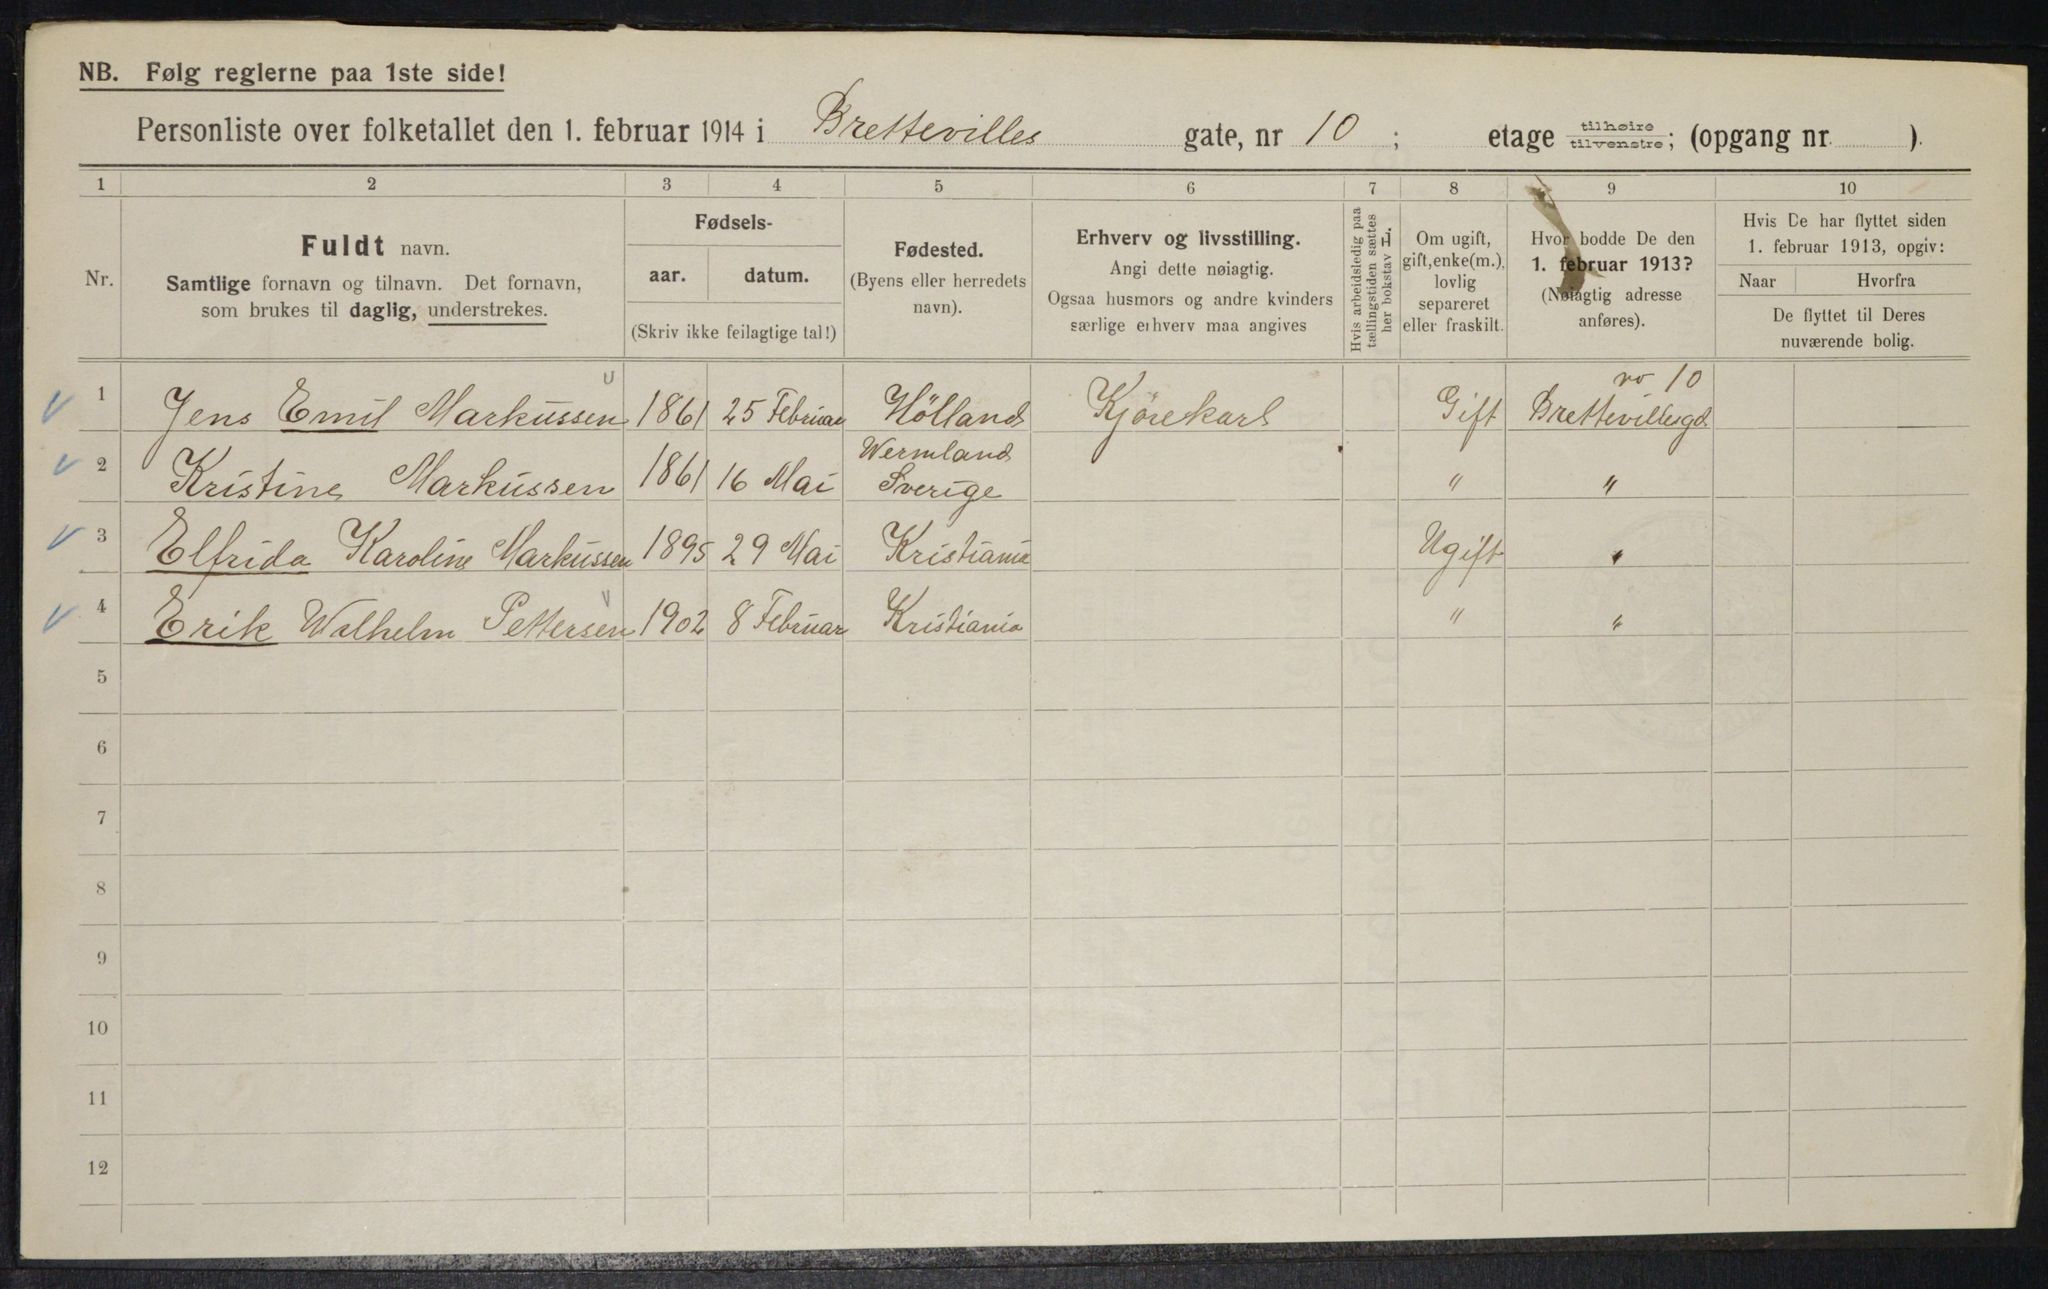 NB. Følg reglerne paa 1ste side!
Personliste over folketallet den 1. februar 1914 i Brettevilles gate, nr 10; etage tilhøire tilvenstre; (opgang nr. ).
1 2 3 4 5 6 7 8 9 10
Nr.
Fuldt navn.
Samtlige fornavn og tilnavn. Det fornavn,
som brukes til daglig, understrekes.
Fødsels-
aar. datum.
(Skriv ikke feilagtige tal!)
Fødested.
(Byens eller herredets
navn).
Erhverv og livsstilling.
Angi dette nøiagtig.
Ogsaa husmors og andre kvinders
særlige erhverv maa angives
Hvis arbeidsledig paa
tællingstiden sættes
her bokstav L.
Om ugift,
gift, enke(m.),
lovlig
separeret
eller fraskilt.
Hvor bodde De den
1. februar 1913?
(Nøiagtig adresse
anføres).
Hvis De har flyttet siden
1. februar 1913, opgiv:
Naar Hvorfra
De flyttet til Deres
nuværende bolig.
no 10
1 Jens Emil Markussen 1861 25 Februar Hölland Kjörekarl Gift Brettevillesgd
Wermland
2 Kristine Markussen 1861 16 Mai Sverige " "
3 Elfrida Karoline Markussen 1895 29 Mai Kristiania Ugift "
4 Erik Walhelm Pettersen 1902 8 Februar Kristiania " "
5
6
7
8
9
10
11
12